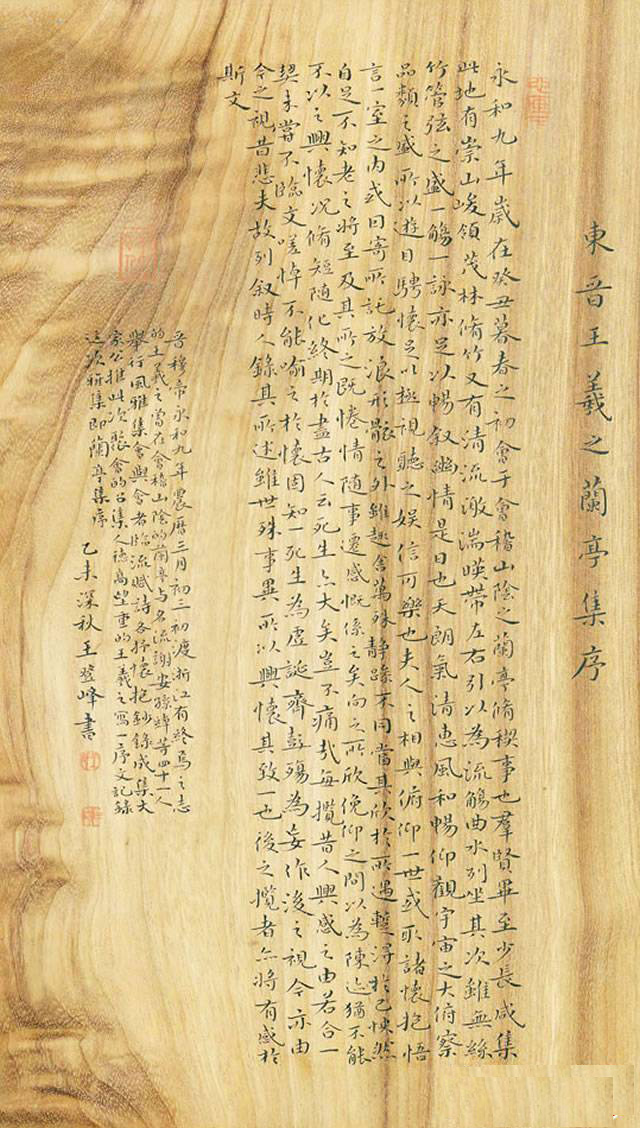 東晉王羲之蘭亭集序
永和九年歲在癸丑暮春之初會于會稽山陰之蘭亭脩禊事也羣賢畢至少長咸集
此地有崇山峻領茂林脩竹又有清流激湍暎帶左右引以為流觴曲水列坐其次雖無絲
竹管弦之盛一觴一詠亦足以暢叙幽情是日也天朗氣清惠風和暢仰觀宇宙之大俯察
品類之盛所以遊目騁懷足以極視聽之娛信可樂也夫人之相與俯仰一世或取諸懷抱悟
言一室之内或因寄所託放浪形骸之外雖趣舍萬殊静躁不同當其欣於所遇暫得於己怏然
自足不知老之將至及其所之既惓情隨事遷感慨係之矣向之所欣俛仰之間以為陳迹猶不能
不以之興懷况脩短隨化終期於盡古人云死生亦大矣豈不痛哉每攬昔人興感之由若合一
契未嘗不臨文嗟悼不能喻之於懷固知一死生為虛誕齊彭殤為妄作後之視今亦由
今之視昔悲夫故列叙時人錄其所述雖世殊事異所以興懷其致一也後之攬者亦將有感於
斯文
晉穆帝永和九年農曆三月初三初渡浙江有終焉之志
的王羲之曾在會稽山陰的蘭亭与名流謝安孫綽等四十一人
舉行風雅集會與會者臨流賦詩各抒懷抱鈔錄成集大
家公推此次聚會的召集人德高望重的王羲之寫一序文記錄
這次雅集即蘭亭集序 乙未深秋王登峰書